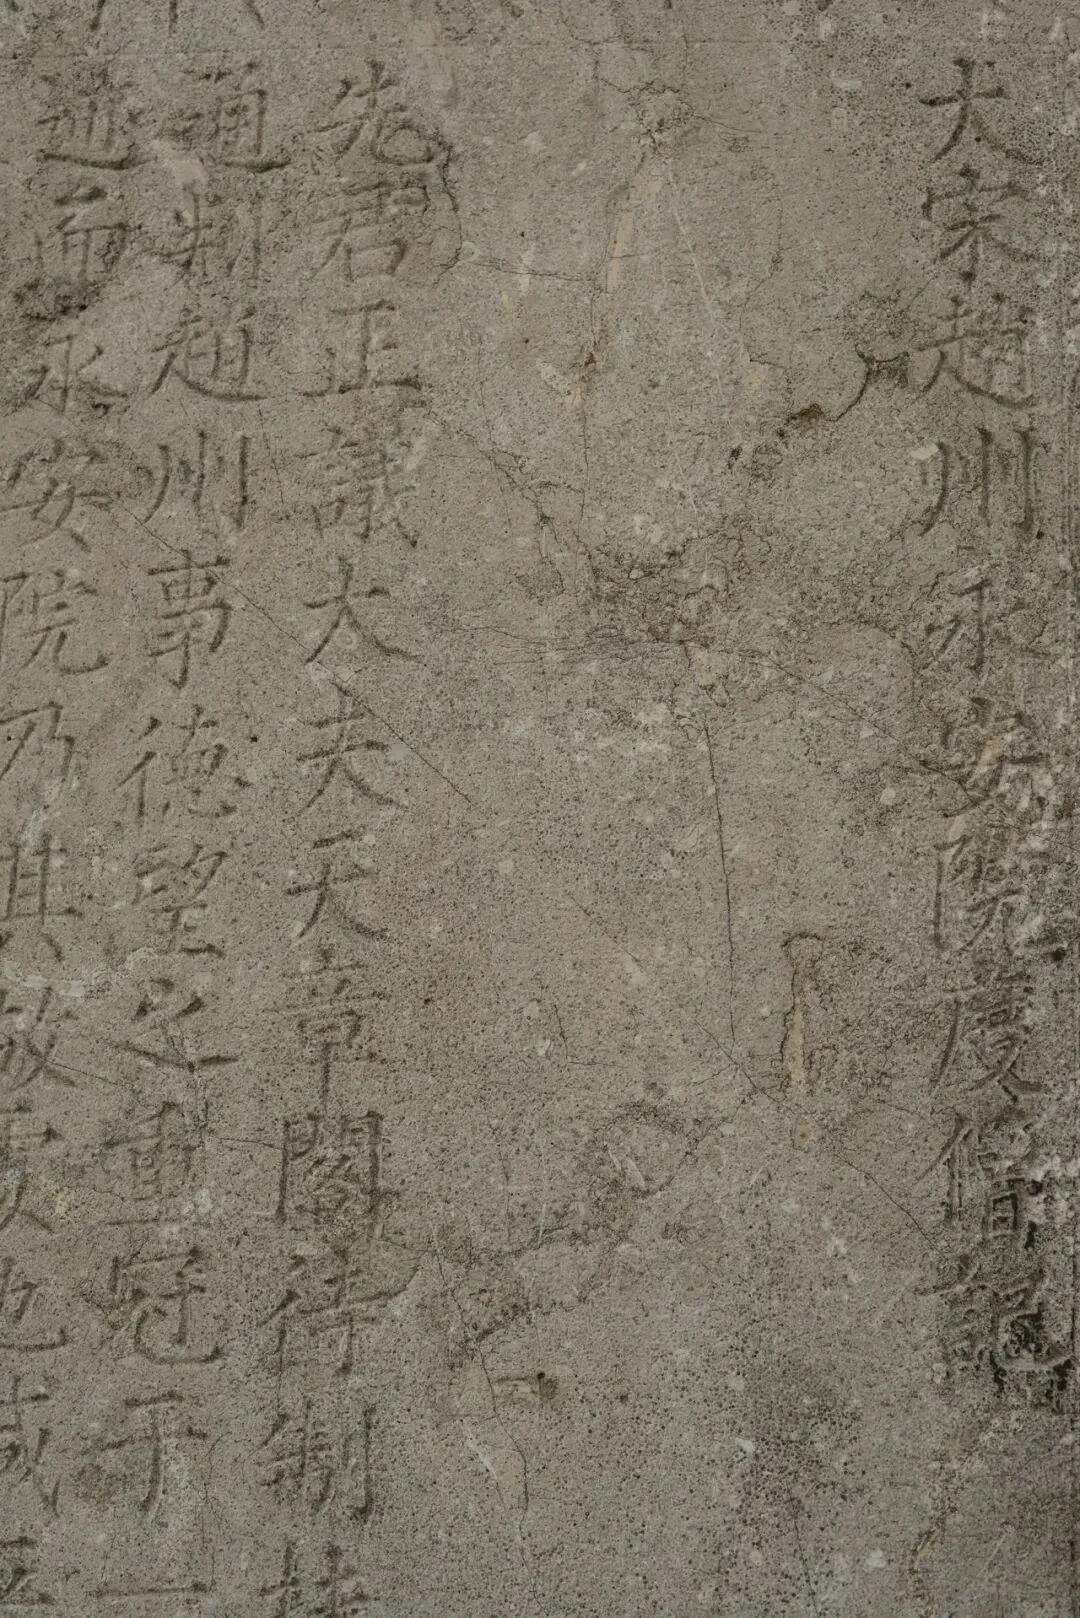 大宋趙州永安院度僧記
先君正議大夫天章閣待制
通判趙州事德望之重冠于一
逝而永安院乃其故